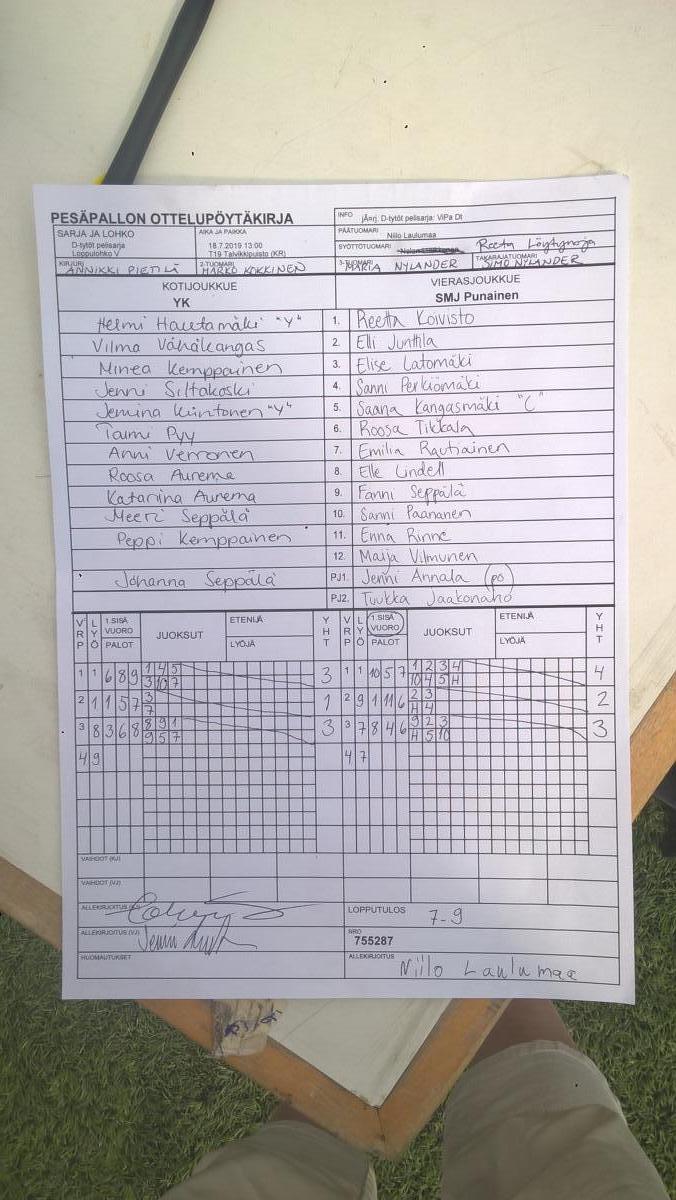 PESÄPALLON OTTELUPÖYTÄKIRJA
INFO jÃ¤rj. D-tytöt pelisarja: ViPa Dt
SARJA JA LOHKO
D-tytöt pelisarja
Loppulohko V
AIKA JA PAIKKA
18.7.2019 13:00
T19 Talvikkipuisto (KR)
PÄÄTUOMARI Niilo Laulumaa
SYÖTTÖTUOMARI Reeta Löytynoja
KIRJURI ANNIKKI PIETILÄ
2-TUOMARI MARKO KOKKINEN
3-TUOMARI MARIA NYLANDER
TAKARAJATUOMARI SIMO NYLANDER
KOTIJOUKKUE
YK
VIERASJOUKKUE
SMJ Punainen
Helmi Hautamäki "Y" 1. Reetta Koivisto
Vilma Vähäkangas 2. Elli Junttila
Minea Kemppainen 3. Elise Latomäki
Jenni Siltakoski 4. Sanni Perkiömäki
Jemina Kiintonen "Y" 5. Saana Kangasmäki "C"
Taimi Pyy 6. Roosa Tikkala
Anni Verronen 7. Emilia Rautiainen
Roosa Aurema 8. Elle Lindell
Katariina Aurema 9. Fanni Seppälä
Meeri Seppälä 10. Sanni Paananen
Peppi Kemppainen 11. Enna Rinne
12. Maija Vilmunen
Johanna Seppälä PJ1. Jenni Annala (PO)
PJ2. Tuukka Jaakonaho
VRP LYÖ 1.SISÄ VUORO PALOT JUOKSUT ETENIJÄ LYÖJÄ YHT VRP LYÖ 1.SISÄ VUORO PALOT JUOKSUT ETENIJÄ LYÖJÄ YHT
1 1 6 8 9 1 4 5 3 1 1 10 5 7 1 2 3 4 4
3 10 7 10 4 5 H
2 1 1 5 7 3 1 2 9 1 11 6 2 3 2
7 H 4
3 8 3 6 8 8 9 1 3 3 7 8 4 6 9 2 3 3
9 5 7 H 5 10
4 9 4 7
VAIHDOT (KJ)
VAIHDOT (VJ)
ALLEKIRJOITUS (KJ)
LOPPUTULOS 7-9
ALLEKIRJOITUS (VJ)
NRO
755287
HUOMAUTUKSET
ALLEKIRJOITUS Niilo Laulumaa